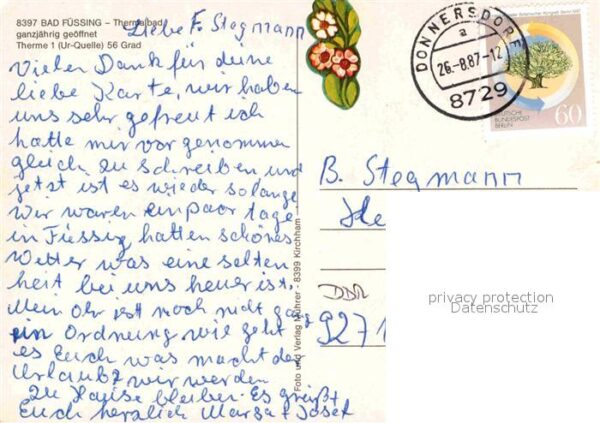 8397 BAD FÜSSING – Thermalbad
ganzjährig geöffnet
Therme 1 (Ur-Quelle) 56 Grad
Liebe F. Stegmann
Vielen Dank für deine
liebe Karte, wir haben
uns sehr gefreut ich
hatte mir vorgenommen
gleich zu schreiben und
jetzt ist es wieder solange
Wir waren ein paar tage
in Füssig hatten schönes
Wetter was eine selten
heit bei uns heuer ist.
Mein Ohr ist noch nicht ganz
in Ordnung wie geht
es Euch was macht der
Urlaub? wir werden
zu Hause bleiben. Es grüßt
Euch herzlich + Josef
Foto und Verlag Mührer - 8399 Kirchham
DONNERSDORF
a
26.-8.87-12
8729
DEUTSCHE
BUNDESPOST
BERLIN
60
B. Stegmann
He
DDR
9271
privacy protection
Datenschutz